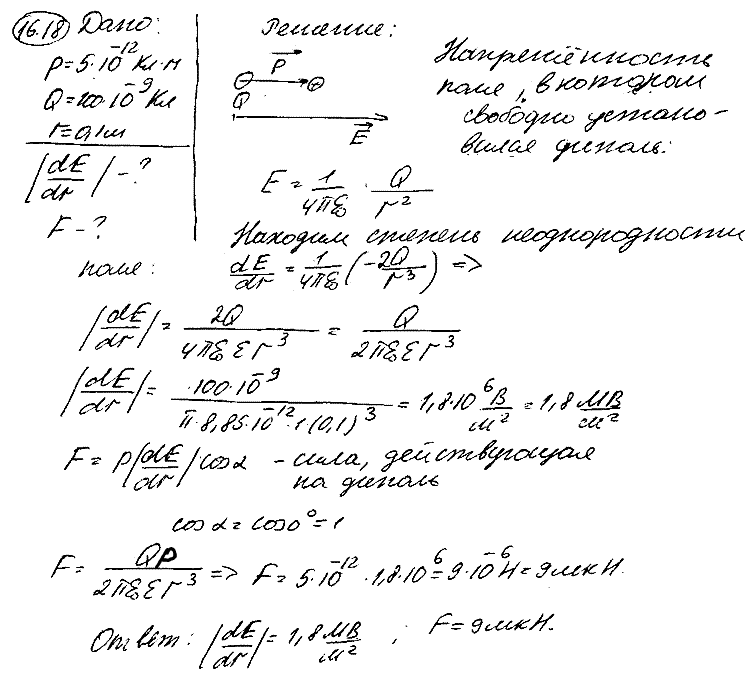 16.18 Дано:
p=5·10⁻¹² Кл·м
Q=100·10⁻⁹ Кл
r=0,1м
|dE/dr| -?
F -?
Решение:
p
Q
E
Напряжённость
поля, в котором
свободно устано-
вился диполь:
E = 1/4πε₀ · Q/r²
Находим степень неоднородности
поля: dE/dr = 1/4πε₀ (-2Q/r³) =>
|dE/dr| = 2Q/4πε₀εr³ = Q/2πε₀εr³
|dE/dr| = ·100·10⁻⁹/π·8,85·10⁻¹²·1(0,1)³ = 1,8·10⁶ В/м² = 1,8 МВ/м²
F = p|dE/dr| cosα - сила, действующая
на диполь
cos α = cos0° = 1
F = Qp/2πε₀εr³ => F = 5·10⁻¹² · 1,8·10⁶ = 9·10⁻⁶ Н = 9мкН.
Ответ: |dE/dr| = 1,8 МВ/м² ; F = 9мкН.